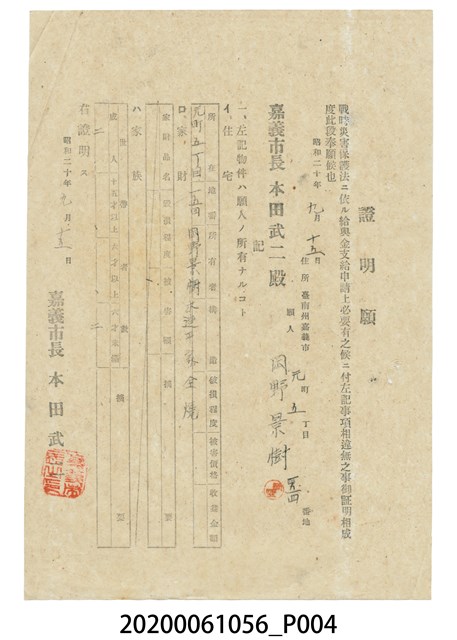 證明願
戰時災害保護法ニ依ル給與金支給申請上必要有之候ニ付左記事項相違無之事御証明相成
度此段奉願候也
昭和二十年九月十五日
住所 臺南州嘉義市元町五丁目 番地
願人 岡野景樹
嘉義市長 本田武二殿
記
一、左記物件ハ願人ノ所有ナルコト
イ、住宅
所在地番 所有者 構造 破損程度 被害價格 收益金額
元町五丁目 岡野景樹 木造 全燒
ロ、家財
家財品名 破損程度 被害額 摘要
ハ、家族
成人 十五才以上 六才以上 六才未滿 摘要
二 二
右證明ス
昭和二十年九月十五日
嘉義市長 本田武
20200061056_P004